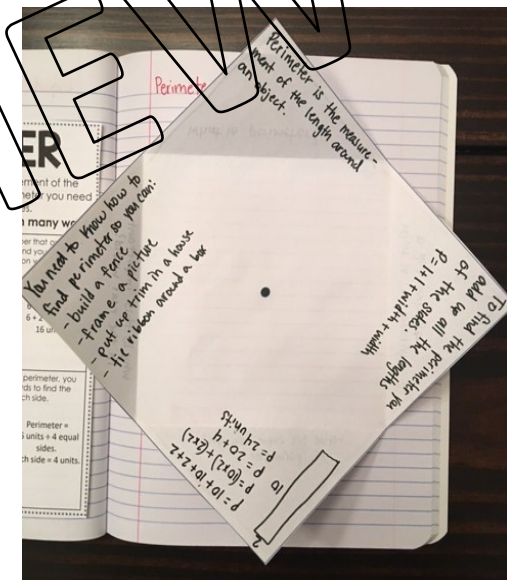 Perimete
Perimeter is the measure-
ment of the length around
an object.
You need to know how to
find perimeter so you can:
- build a fence
- frame a picture
- put up trim in a house
- tie ribbon around a box
To find the perimeter you
add up all the lengths
of the sides.
P = 10 + 10 + 2 + 2
P = (10x2) + (2x2)
P = 20 + 4
P = 24 units
10
2
ER
ement of the
many wa
6 + 2
16 un
perimeter, you
ds to find the
ch side.
Perimeter =
units ÷ 4 equal
sides.
ch side = 4 units.
EW